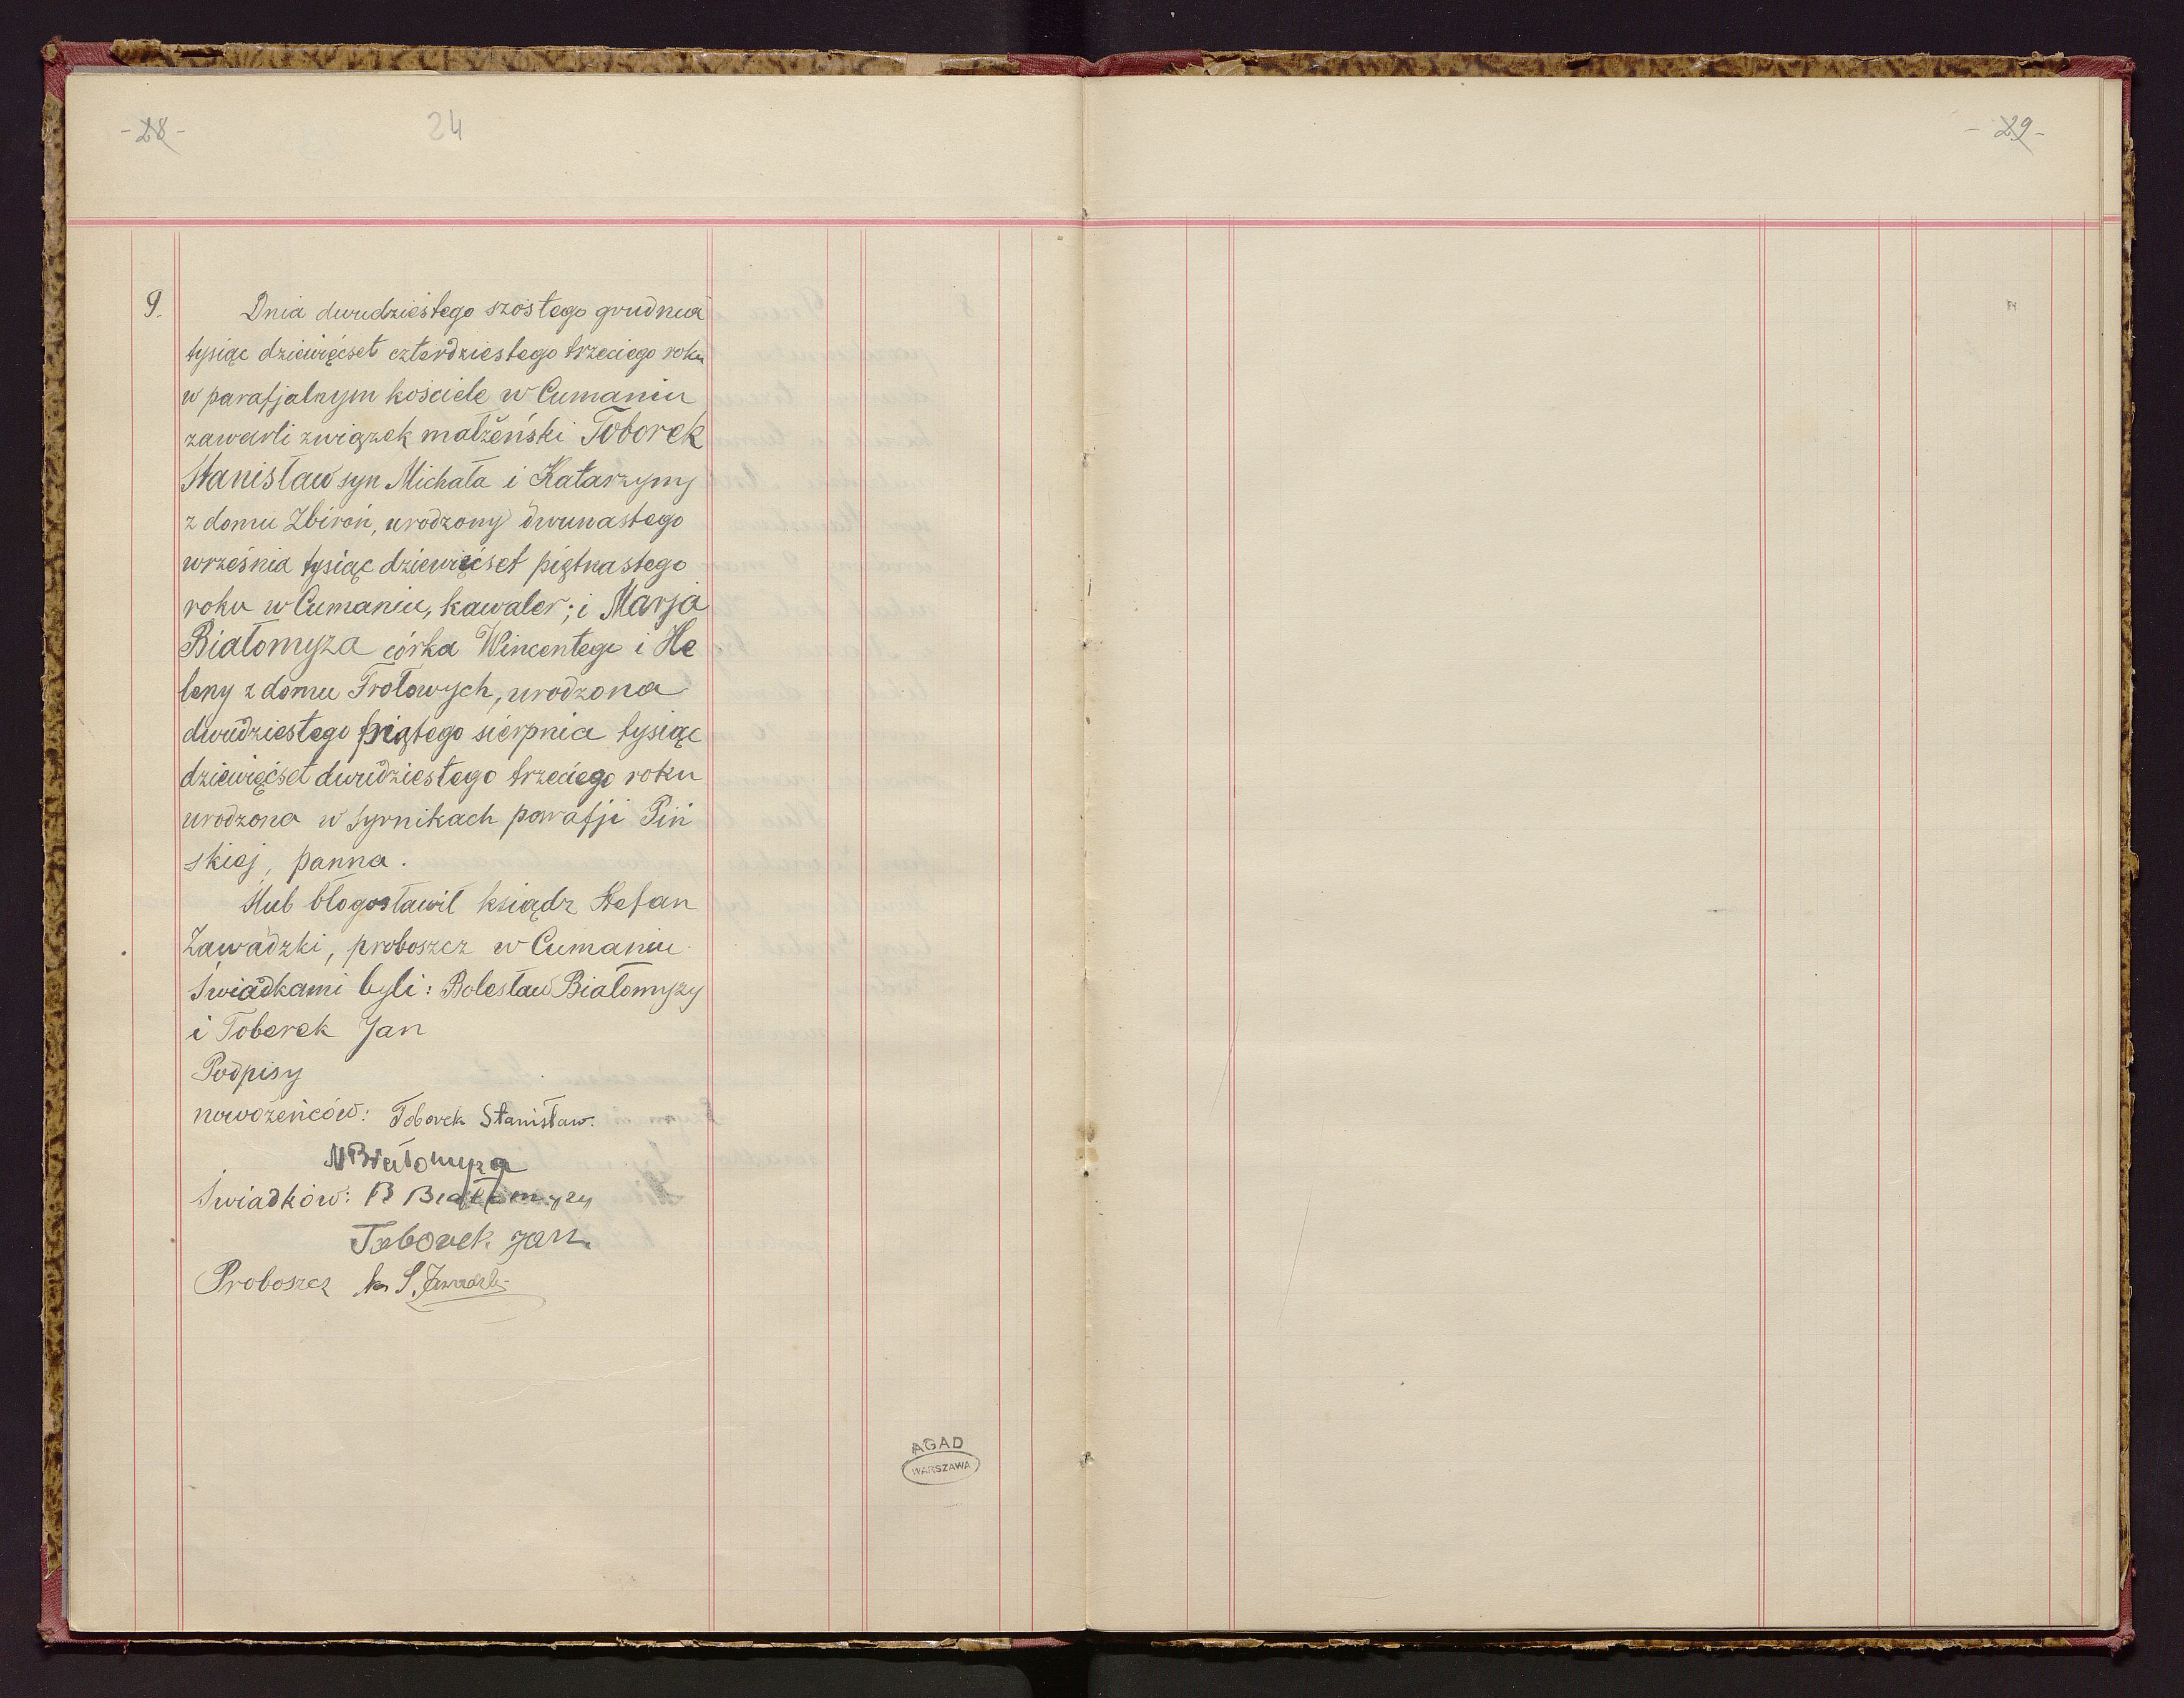 - 28 -
24
- 29 -
9.
Dnia dwudziestego szóstego grudnia
tysiąc dziewięćset czterdziestego trzeciego roku
w parafjalnym kościele w Cumaniu
zawarli związek małżeński Toborek
Stanisław syn Michała i Katarzyny
z domu Zbiroń, urodzony dwunastego
września tysiąc dziewięćset piętnastego
roku w Cumaniu, kawaler; i Marja
Białomyza córka Wincentego i He
leny z domu Frołowych, urodzona
dwudziestego piątego sierpnia tysiąc
dziewięćset dwudziestego trzeciego roku
urodzona w Syrnikach parafji Piń
skiej, panna.
Ślub błogosławił ksiądz Stefan
Zawadzki, proboszcz w Cumaniu.
Świadkami byli: Bolesław Białomyzy
i Toborek Jan
Podpisy
nowożeńców: Toborek Stanisław.
M Białomyza
Świadków: B Białomyzy
Toborek Jan.
Proboszcz ks S. Zawadzki
AGAD
WARSZAWA